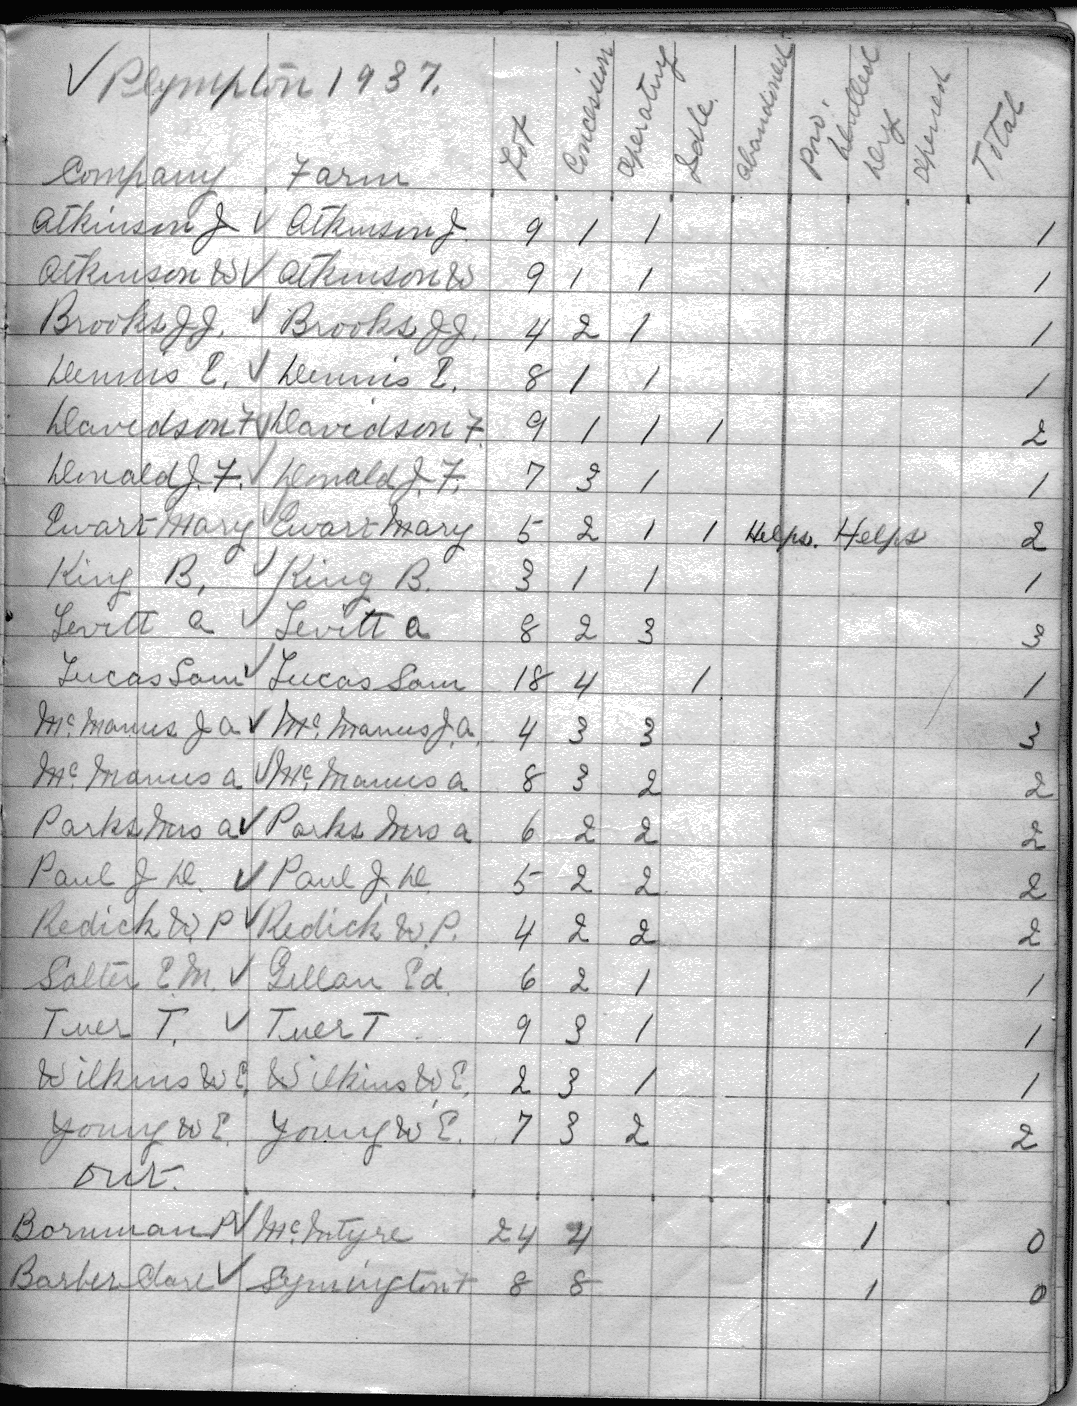 ✓ Plympton 1937.
Company Farm Lot Concession Operating Idle. Abandoned Pro. Drilled Dry Opened Total
Atkinson J ✓ Atkinson J. 9 1 1 1
Atkinson W ✓ Atkinson W 9 1 1 1
Brooks J.J. ✓ Brooks J.J. 4 2 1 1
Dennis E. ✓ Dennis E. 8 1 1 1
Davidson F ✓ Davidson F. 9 1 1 1 2
Donald J. F. ✓ Donald J. F. 7 3 1 1
Ewart Mary ✓ Ewart Mary 5 2 1 1 Helps. Helps 2
King B, ✓ King B. 3 1 1 1
Levitt a ✓ Levitt a 8 2 3 3
Lucas Sam ✓ Lucas Sam 18 4 1 1
McManus J a ✓ Mc. Manus J. a. 4 3 3 3
Mc. Manus a ✓ Mc. Manus a 8 3 2 2
Parks Mrs a ✓ Parks Mrs a 6 2 2 2
Paul J D. ✓ Paul J. D. 5 2 2 2
Redick W. P ✓ Redick W. P. 4 2 2 2
Salter E. M. ✓ Gillan Ed. 6 2 1 1
Tuer T. ✓ Tuer T 9 3 1 1
Wilkins W E. Wilkins W. E. 2 3 1 1
Young W E. Young W E. 7 3 2 2
Out.
Bornman P ✓ Mc. Intyre 24 4 1 0
Barber Clare ✓ Symington 8 8 1 0